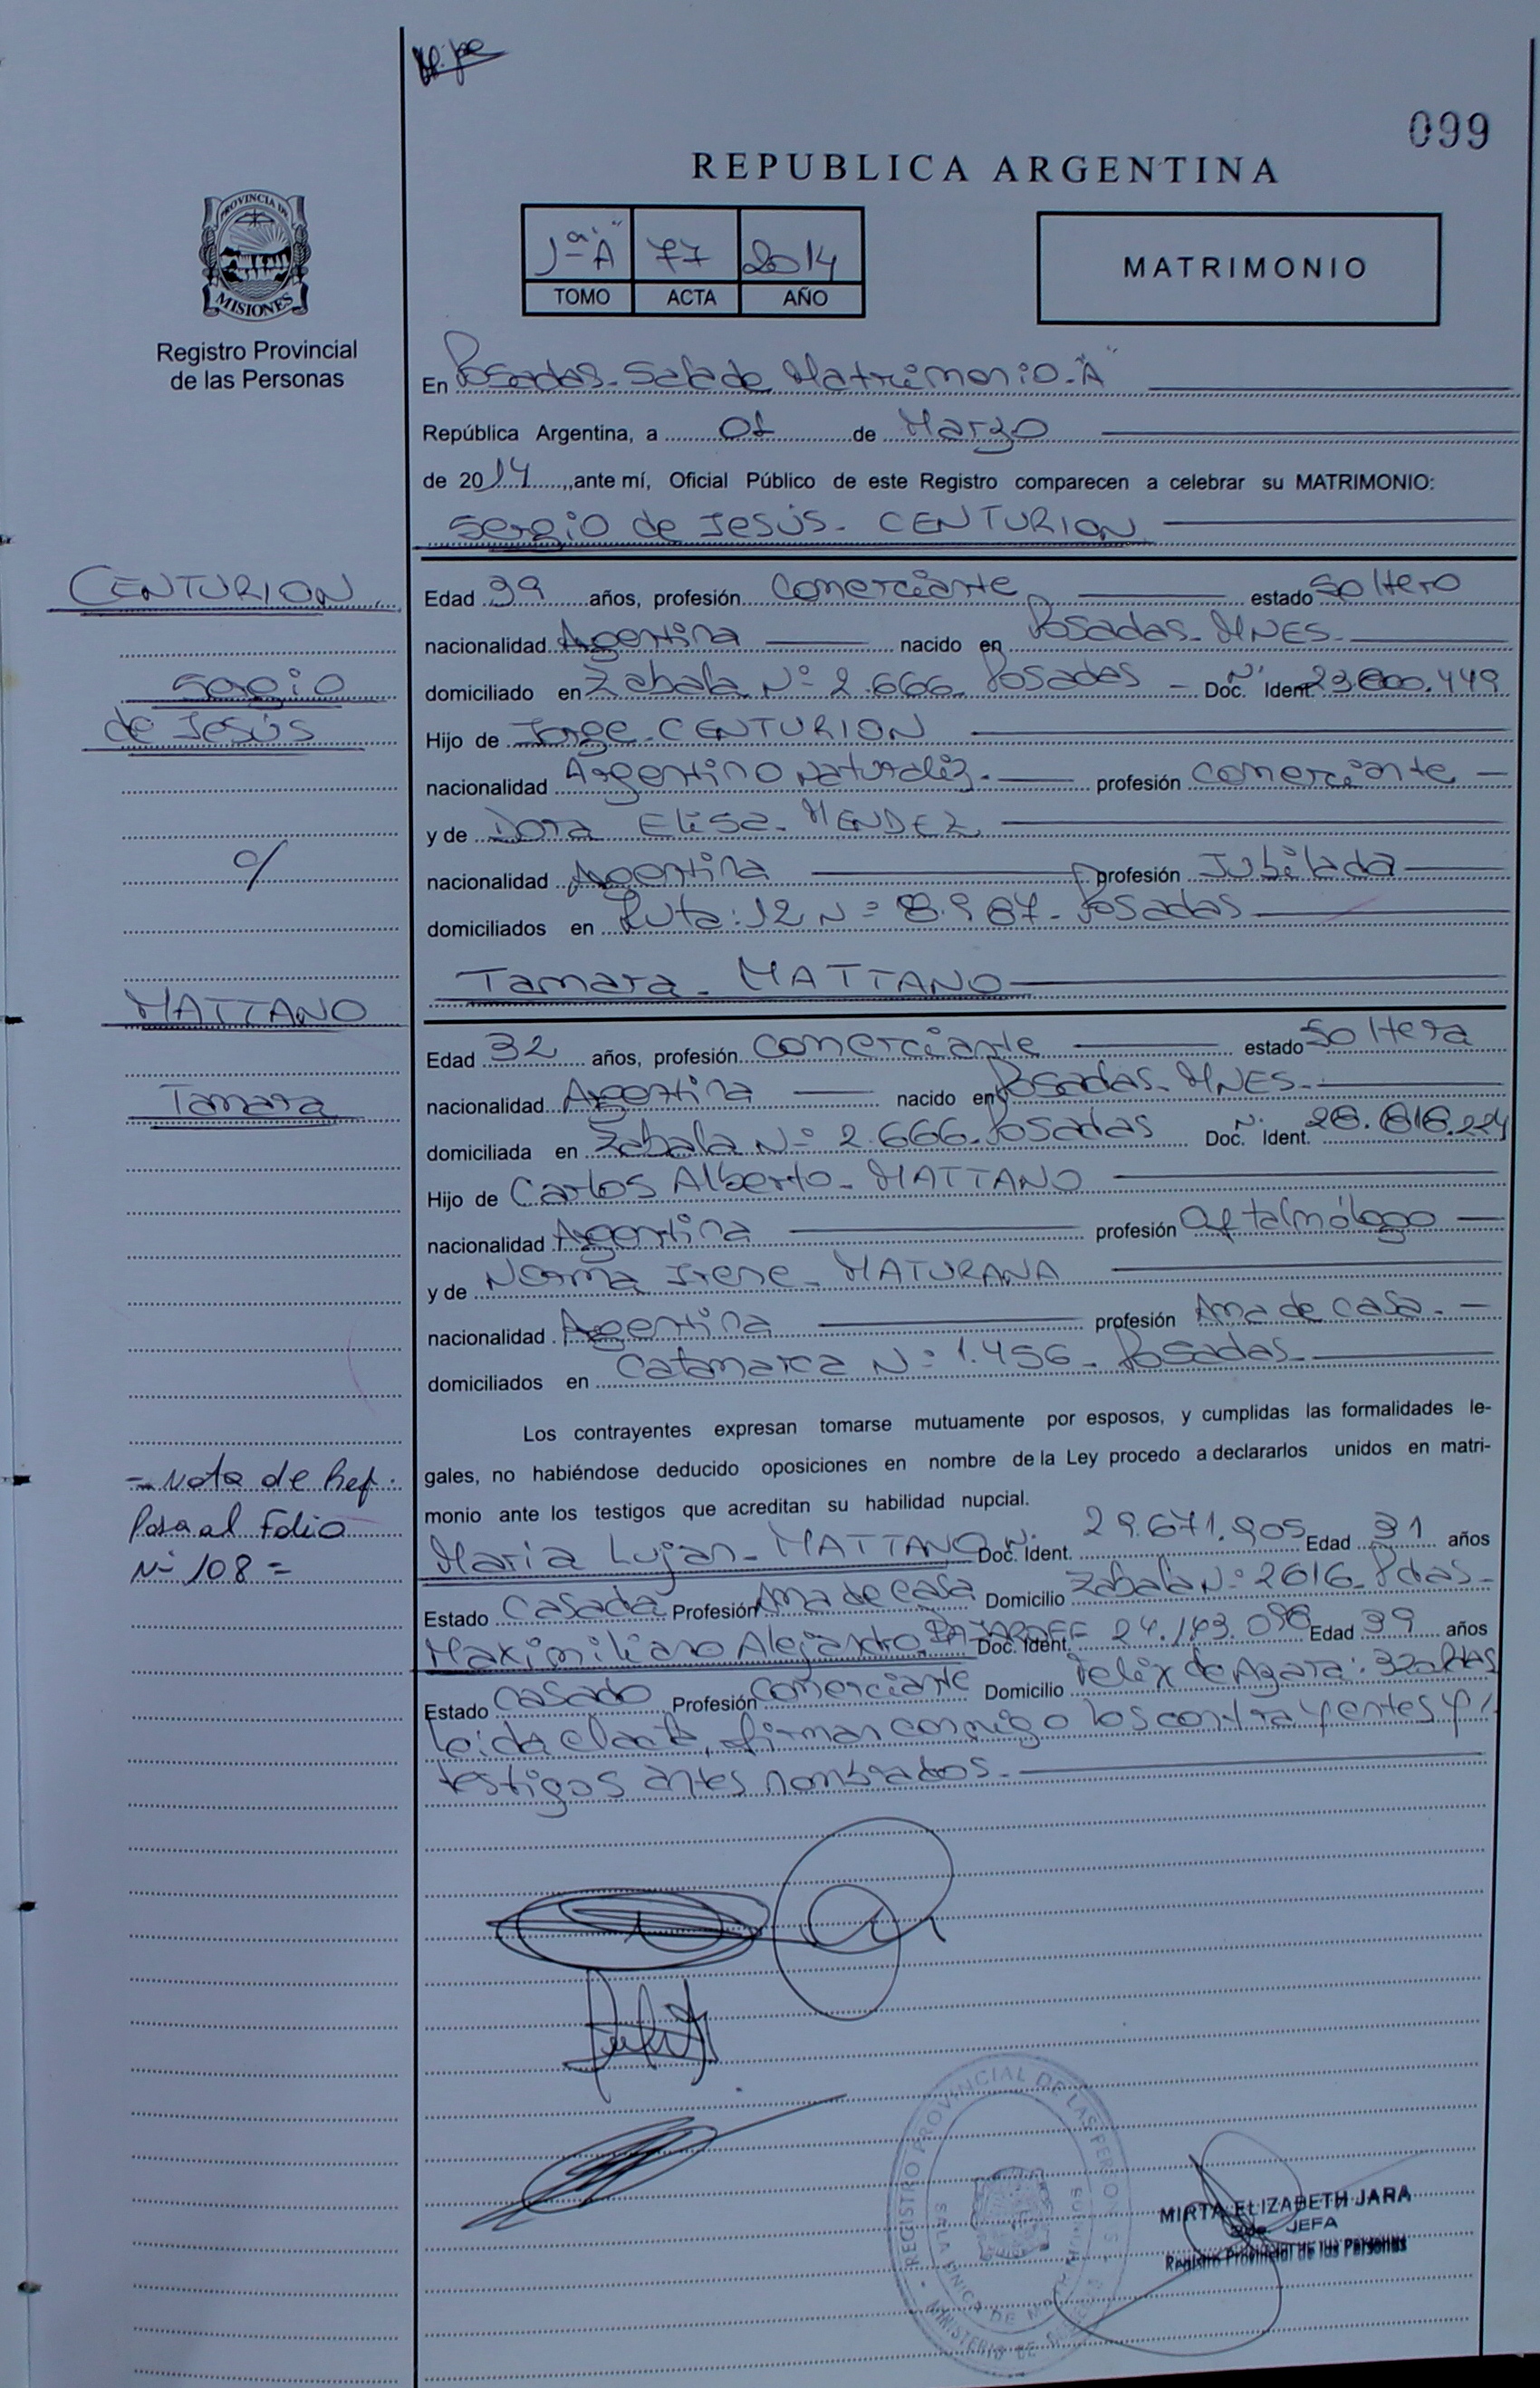 099
REPUBLICA ARGENTINA
PROVINCIA DE
MISIONES
Registro Provincial
de las Personas
1ª "A" 77 2014
TOMO ACTA AÑO
MATRIMONIO
En Posadas- Sala de Matrimonio- "A"
República Argentina, a 01 de Marzo
de 2014, ante mí, Oficial Público de este Registro comparecen a celebrar su MATRIMONIO:
Sergio de Jesús- CENTURION
CENTURION
Sergio
de Jesús
c/
MATTANO
Tamara
Edad 39 años, profesión Comerciante estado Soltero
nacionalidad Argentina nacido en Posadas- MNES-
domiciliado en Zabala Nº 2.666- Posadas - Doc. Ident. Nº 23.800.449
Hijo de Jorge- CENTURION
nacionalidad Argentino naturaliz.- profesión Comerciante -
y de Dora Elisa- MENDEZ
nacionalidad Argentina profesión Jubilada
domiciliados en Ruta: 12 Nº 8.967- Posadas
Tamara- MATTANO
Edad 32 años, profesión Comerciante estado Soltera
nacionalidad Argentina nacido en Posadas- MNES-
domiciliada en Zabala Nº 2.666- Posadas Doc. Ident. Nº 28.616.224
Hijo de Carlos Alberto- MATTANO
nacionalidad Argentina profesión Oftalmólogo
y de Norma Irene- MATURANA
nacionalidad Argentina profesión Ama de casa.-
domiciliados en Catamarca Nº 1.456- Posadas-
Los contrayentes expresan tomarse mutuamente por esposos, y cumplidas las formalidades le-
gales, no habiéndose deducido oposiciones en nombre de la Ley procedo a declararlos unidos en matri-
monio ante los testigos que acreditan su habilidad nupcial.
- Nota de Ref.
Pasa al Folio
Nº 108 =
Maria Lujan- MATTANO Doc. Ident. Nº 29.671.905 Edad 31 años
Estado Casada Profesión Ama de casa Domicilio Zabala Nº 2616- Pdas-
Maximiliano Alejandro Doc. Ident. 24.143.098 Edad 39 años
Estado Casado Profesión Comerciante Domicilio Felix de Azara: 320 Pdas
Leida el acta, firman conmigo los contrayentes y/
testigos antes nombrados.-
REGISTRO PROVINCIAL DE LAS PERSONAS
SALA UNICA DE MATRIMONIOS
MINISTERIO DE
MIRTA ELIZABETH JARA
JEFA
Registro Provincial de las Personas